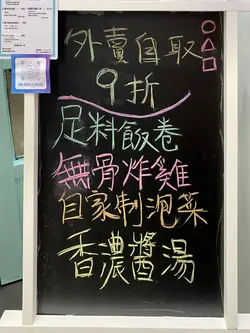 外賣自取
9折
足料飯卷
無骨炸雞
自家制泡菜
香濃醬湯